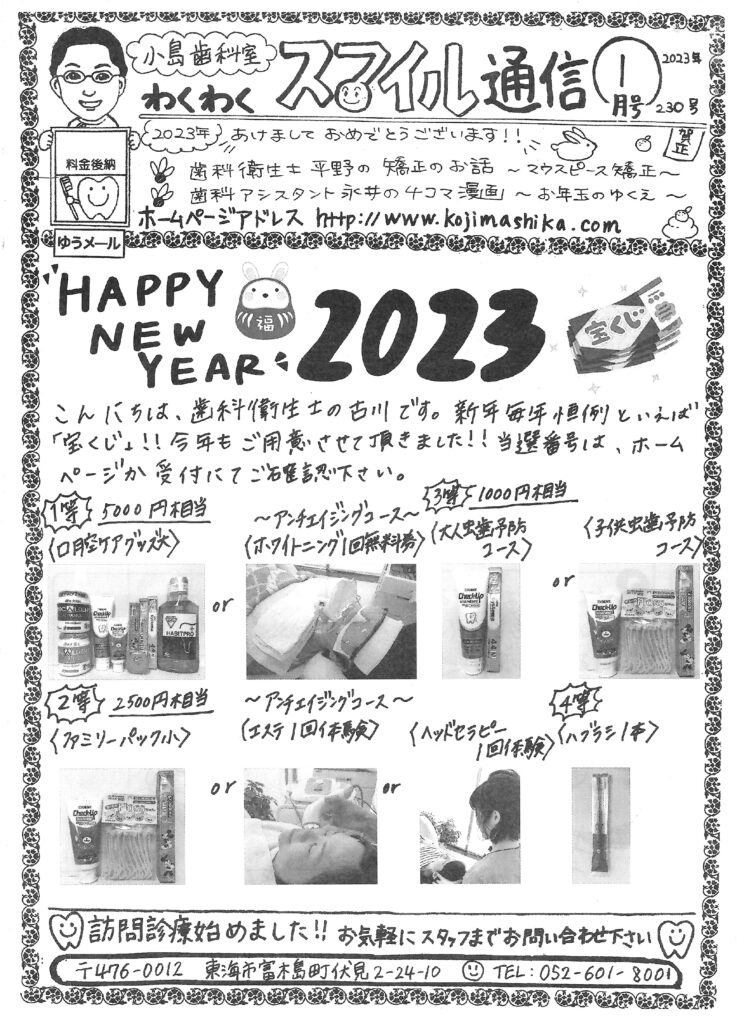 小島歯科室
わくわく スマイル通信
1月号
2023年
230号
2023年 あけまして おめでとうございます!!
賀正
歯科衛生士 平野の 矯正のお話 ～マウスピース矯正～
歯科アシスタント 永井の4コマ漫画 ～お年玉のゆくえ～
ホームページアドレス http://www.kojimashika.com
料金後納
ゆうメール
"HAPPY NEW YEAR" 2023
福
宝くじ
こんにちは、歯科衛生士の古川です。新年毎年恒例といえば
「宝くじ」!!今年もご用意させて頂きました!!当選番号は、ホーム
ページか受付にてご確認下さい。
1等 5000円相当
〈口腔ケアグッズ大〉
or
～アンチエイジングコース～
〈ホワイトニング1回無料券〉
3等 1000円相当
〈大人虫歯予防コース〉
or
〈子供虫歯予防コース〉
CheckUp
HABITPRO
2等 2500円相当
〈ファミリーパック小〉
or
～アンチエイジングコース～
〈エステ1回体験〉
or
〈ヘッドセラピー1回体験〉
4等
〈ハブラシ1本〉
CheckUp
訪問診療始めました!! お気軽にスタッフまでお問い合わせ下さい
〒476-0012 東海市富木島町伏見2-24-10 TEL:052-601-8001